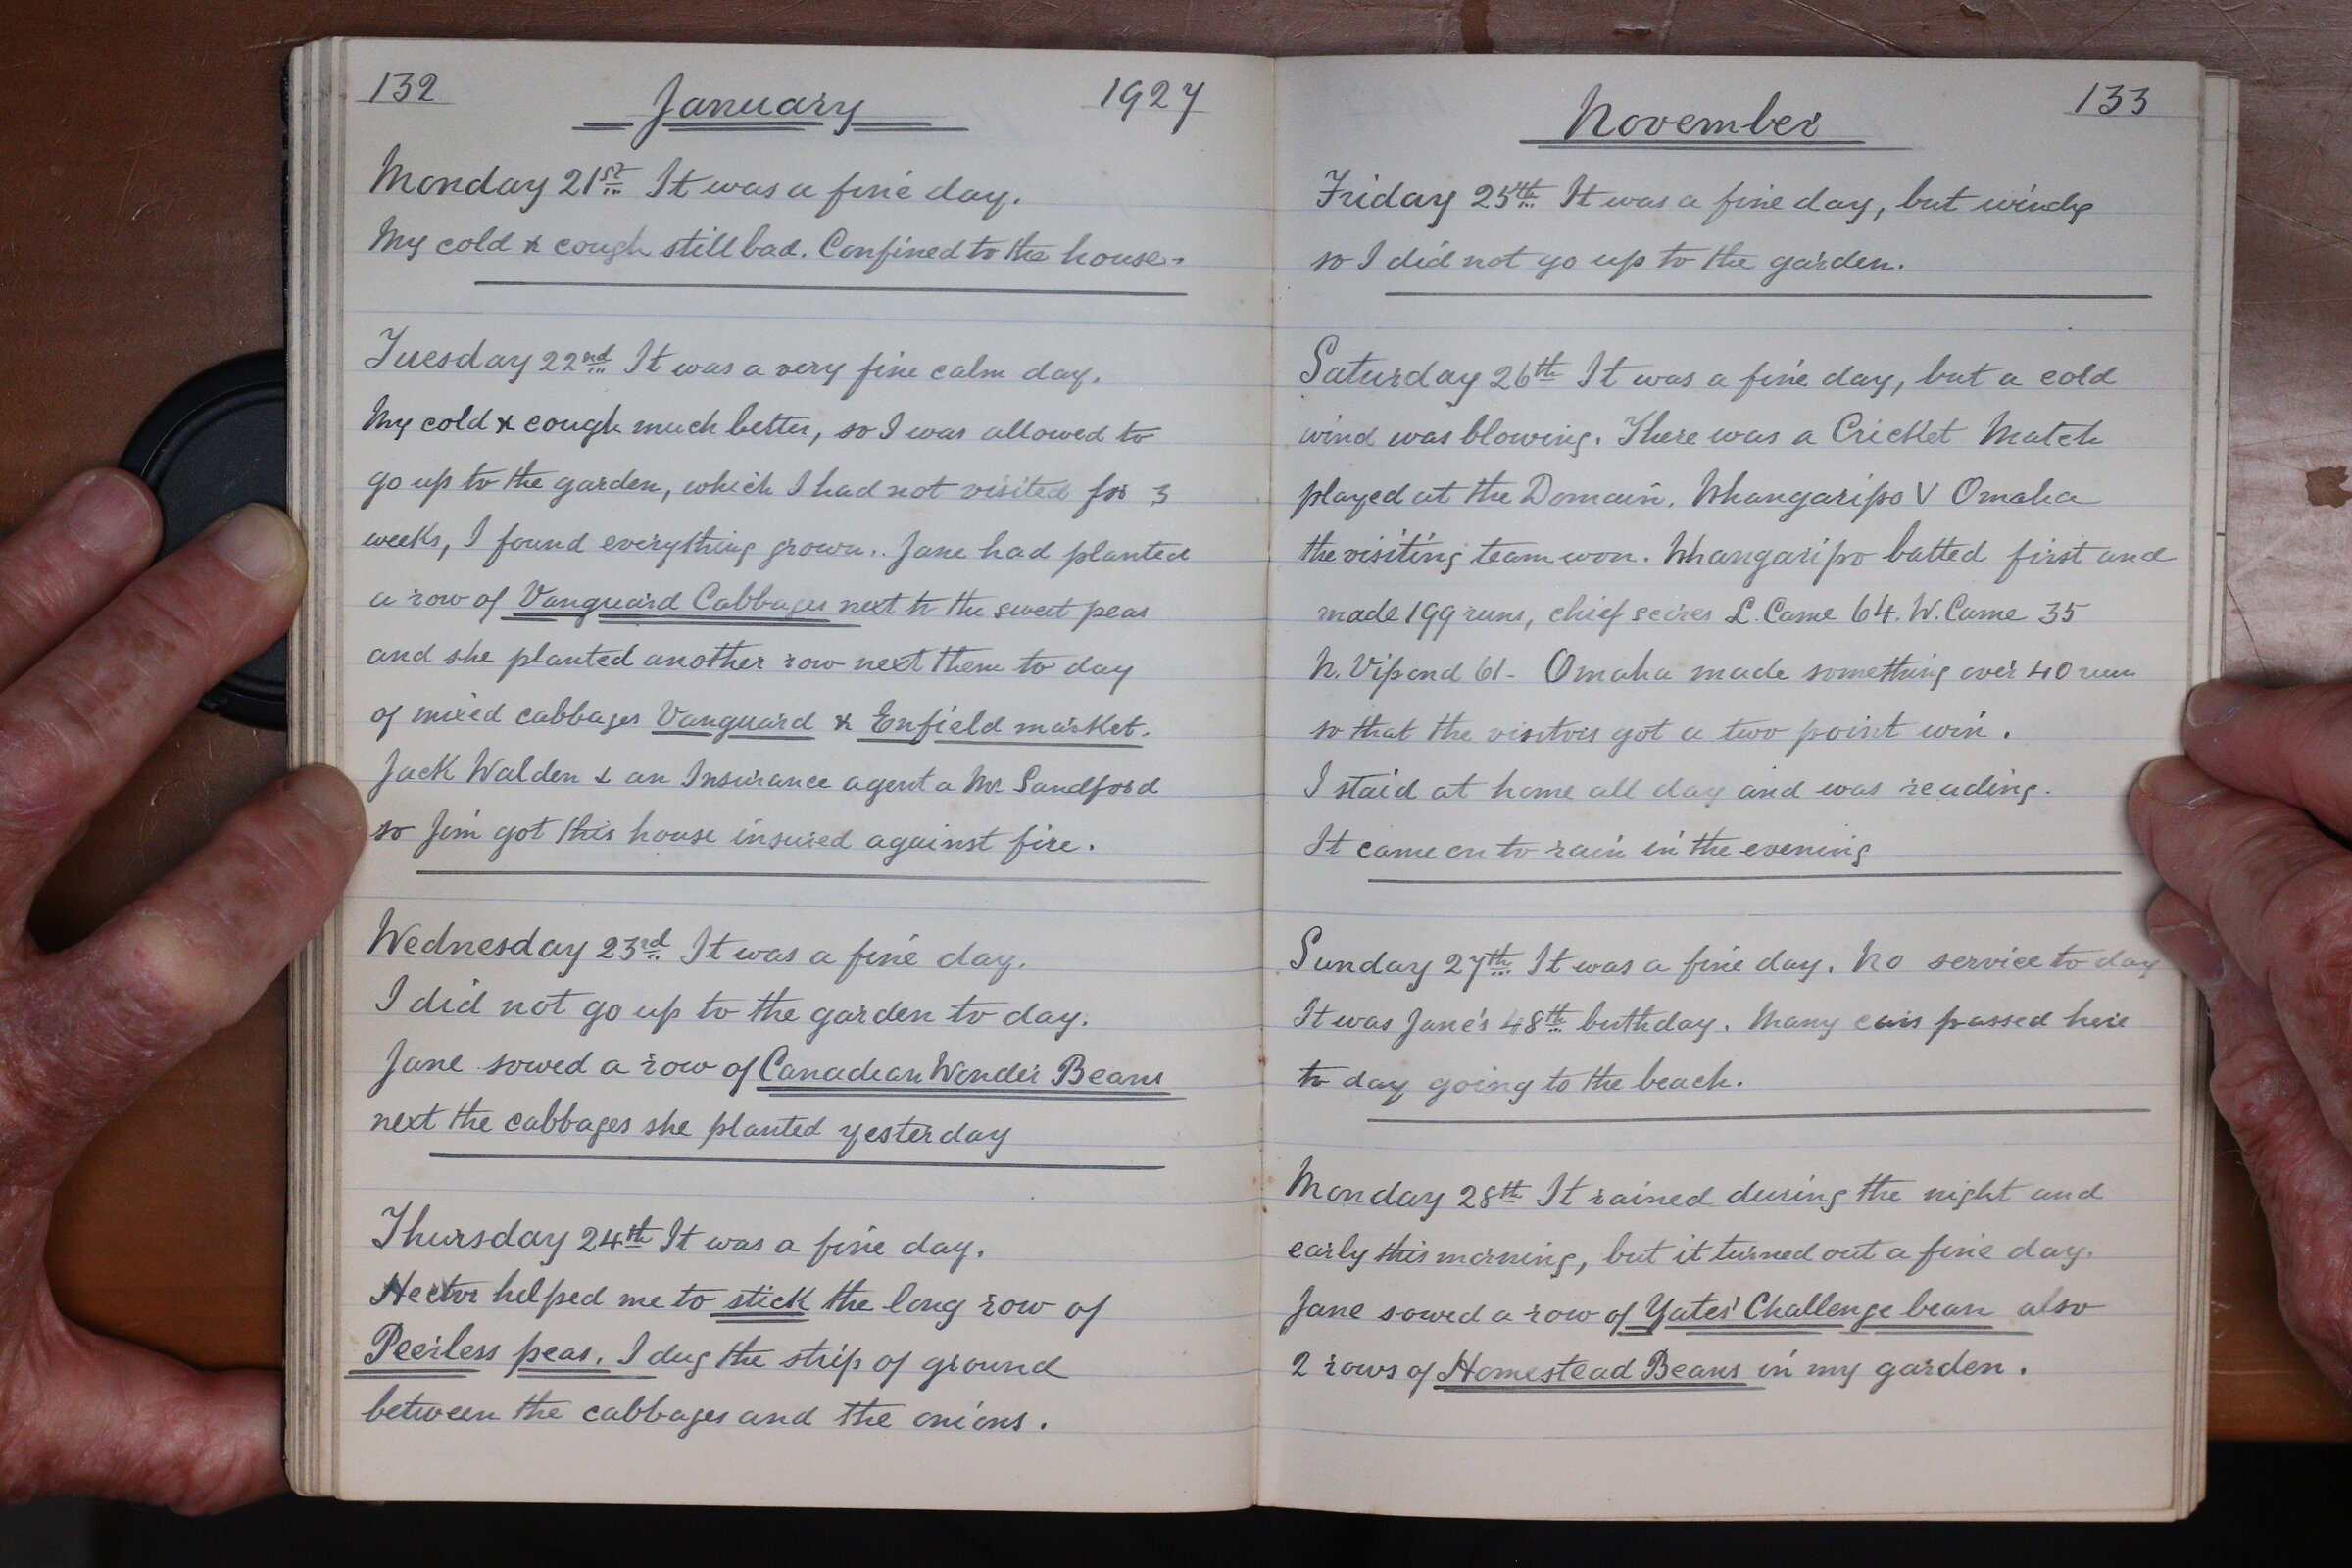 132
January
1927
Monday 21st It was a fine day.
My cold & cough still bad. Confined to the house.
Tuesday 22nd It was a very fine calm day.
My cold & cough much better, so I was allowed to
go up to the garden, which I had not visited for 3
weeks, I found everything grown.. Jane had planted
a row of Vanguard Cabbages next to the sweet peas
and she planted another row next them to day
of mixed cabbages Vanguard & Enfield market.
Jack Walden & an Insurance agent a Mr Sandford
so Jim got this house insured against fire.
Wednesday 23rd It was a fine day.
I did not go up to the garden to day.
Jane sowed a row of Canadian Wonder Beans
next the cabbages she planted yesterday
Thursday 24th It was a fine day.
Hector helped me to stick the long row of
Peerless peas. I dug the strip of ground
between the cabbages and the onions.
November
133
Friday 25th It was a fine day, but windy
so I did not go up to the garden.
Saturday 26th It was a fine day, but a cold
wind was blowing. There was a Cricket Match
played at the Domain. Whangaripo V Omaha
the visiting team won. Whangaripo batted first and
made 199 runs, chief scires L. Came 64. W. Came 35
N. Vipond 61- Omaha made something over 40 runs
so that the visitors got a two point win.
I staid at home all day and was reading.
It came on to rain in the evening
Sunday 27th It was a fine day. No service to day
It was Jane's 48th birthday. Many cars passed here
to day going to the beach.
Monday 28th It rained during the night and
early this morning, but it turned out a fine day.
Jane sowed a row of Yates' Challenge bean also
2 rows of Homestead Beans in my garden.